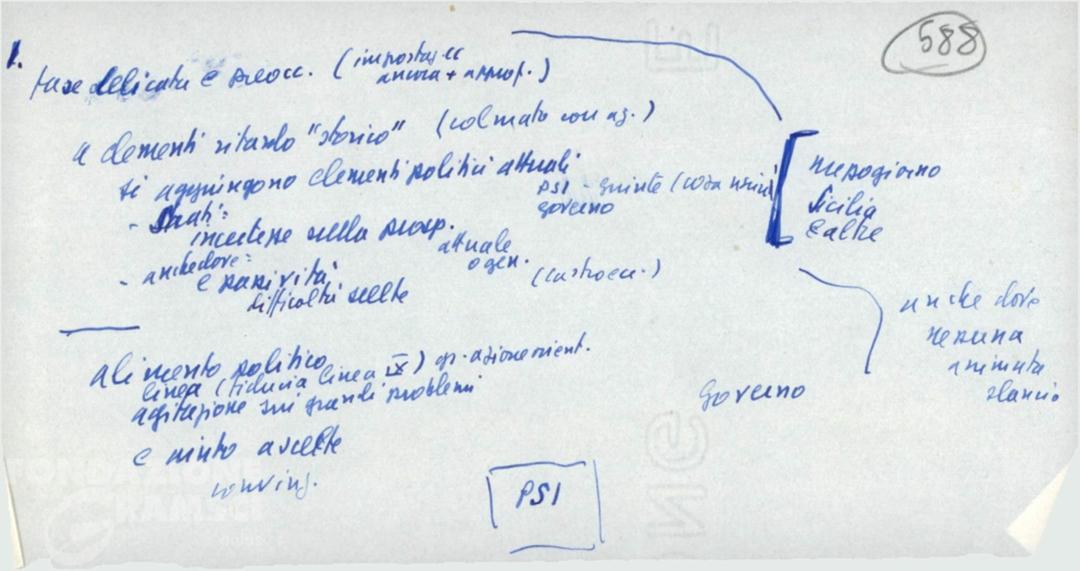 588
1.
fase delicata e preocc. (impostaz. cc
ancora + approf.)
a elementi ritardo "storico" (colmato con az.)
si aggiungono elementi politici attuali
PSI - giunte (cosa
governo
incertezze sulla prosp.
attuale
o gen.
- anche dove:
e passività
difficoltà scelte
mezzogiorno
Sicilia
e altre
anche dove
nessuna
animata
slancio
alimento politico
linea (fiducia linea IX) gr. azione orient.
agitazione sui grandi problemi
governo
e aiuto a scelte
conving.
PSI
FONDAZIONE
GRAMSCI